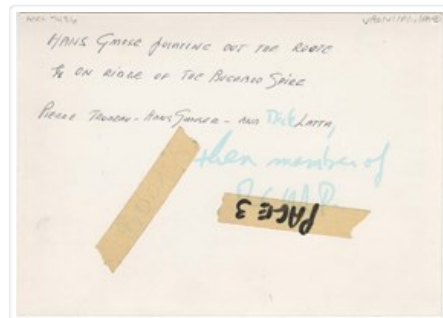 HANS GMOSE POINTING OUT THE ROUTE
ON RIDGE OF THE BUGABOO SPIRE
PIERRE TRUDEAU - HANS GMOSER - AND Dick LATTA,
then member of
R.C.M.P.
PAGE 3